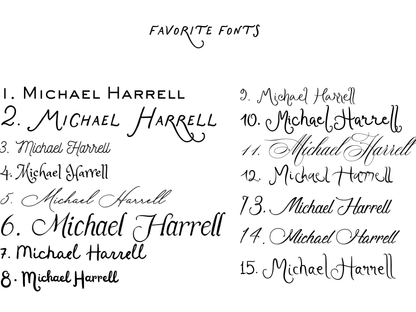 FAVORITE FONTS
1. MICHAEL HARRELL
2. MICHAEL HARRELL
3. Michael Harrell
4. Michael Harrell
5. Michael Harrell
6. Michael Harrell
7. Michael Harrell
8. Michael Harrell
9. Michael Harrell
10. Michael Harrell
11. Michael Harrell
12. Michael Harrell
13. Michael Harrell
14. Michael Harrell
15. Michael Harrell